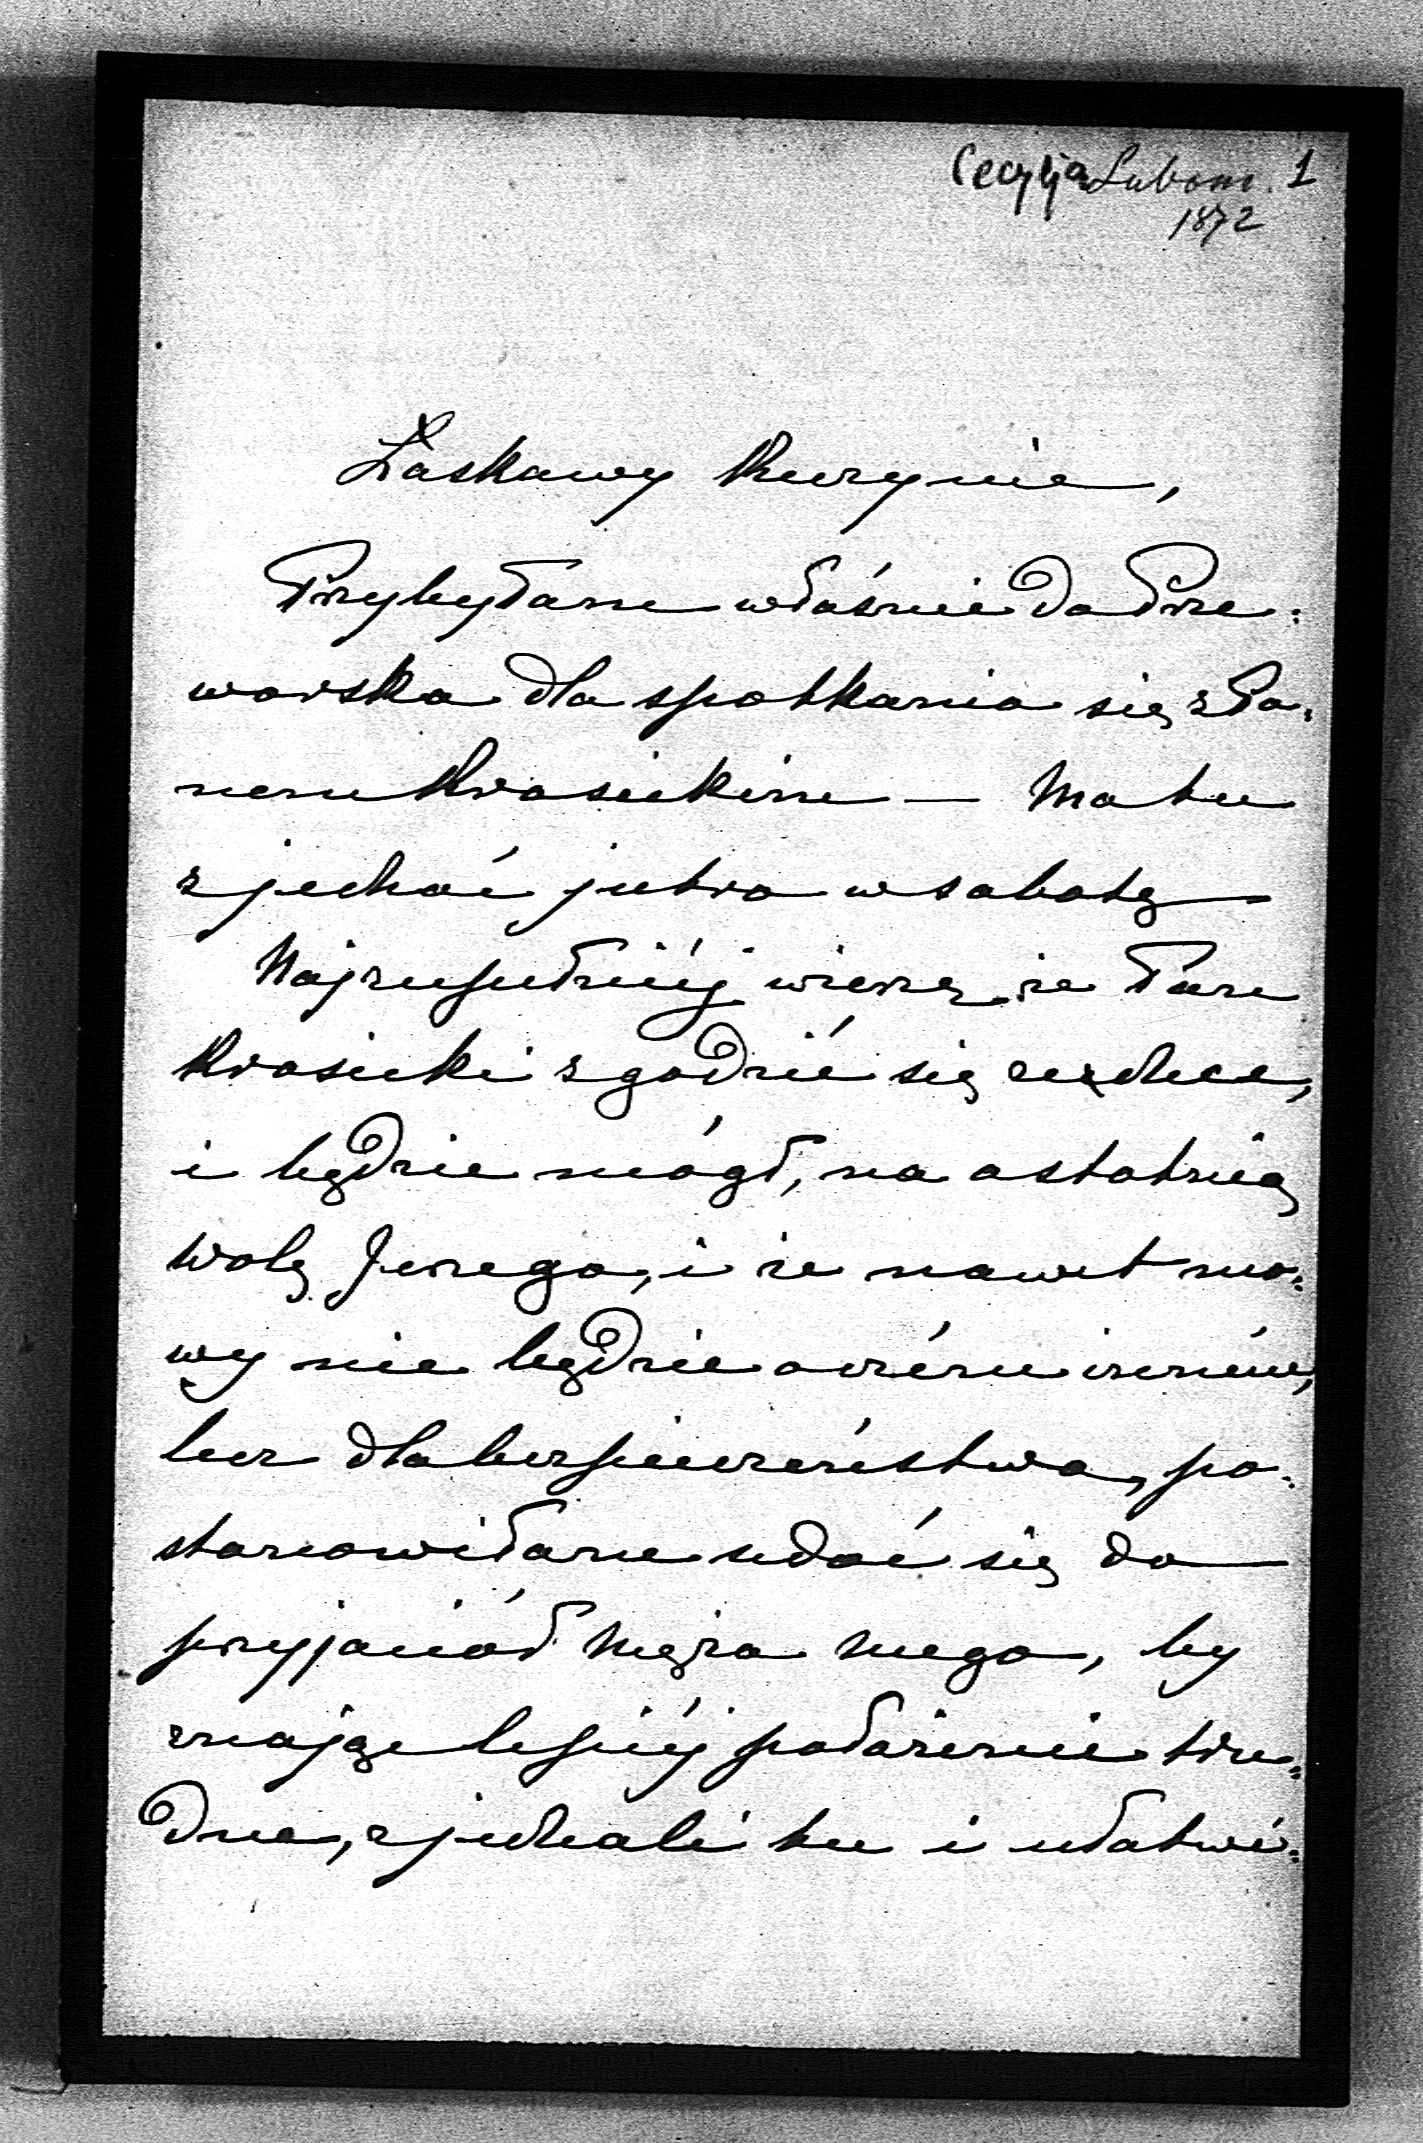 Cecylja Lubom. 1
1872
Łaskawy Kuzynie,
Przybyłam właśnie do Prze:
worska dla spotkania się z Pa:
nem Krasickim — Ma tu
zjechać jutro w sobotę —
Najzupełniéj wierzę że Pan
Krasicki zgodzić się zechce,
i będzie mógł, na ostatnią
wolę Jerzego, i że nawet mo:
wy nie będzie o czém inném,
lecz dla bezpieczeństwa, po:
stanowiłam udać się do
przyjaciół Męża mego, by
znając lepiéj położenie tru:
dne, zjechali tu i ułatwi: